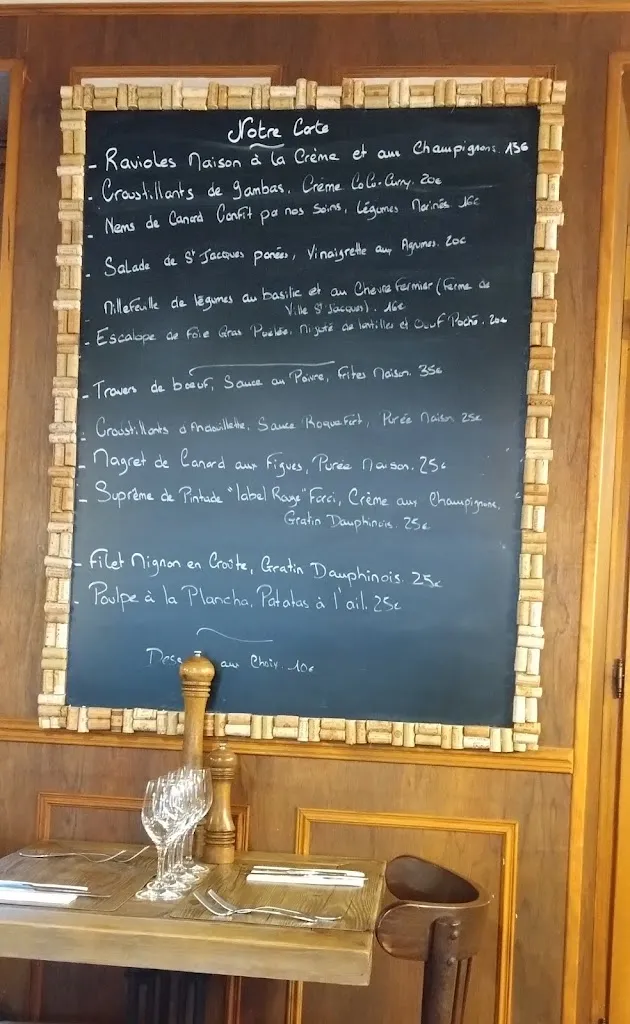 Notre Carte
- Ravioles Maison à la Crème et aux Champignons. 15€
- Croustillants de gambas, Crème CoCo-Curry. 20€
- Nems de Canard Confit par nos Soins, Légumes Marinés 16€
- Salade de St Jacques panées, Vinaigrette aux Agrumes. 20€
- Millefeuille de légumes au basilic et au Chèvre fermier (Ferme de
Ville St Jacques). 16€
- Escalope de Foie Gras Poêlée, Mijoté de lentilles et Oeuf Poché. 20€
- Travers de boeuf, Sauce au Poivre, Frites Maison. 35€
- Croustillants d'Andouillette, Sauce Roquefort, Purée Maison 25€
- Magret de Canard aux Figues, Purée Maison. 25€
- Suprême de Pintade "label Rouge" Farci, Crème aux Champignons,
Gratin Dauphinois. 25€
- Filet Mignon en Croûte, Gratin Dauphinois. 25€
- Poulpe à la Plancha, Patatas à l'ail. 25€
aux Choix. 10€